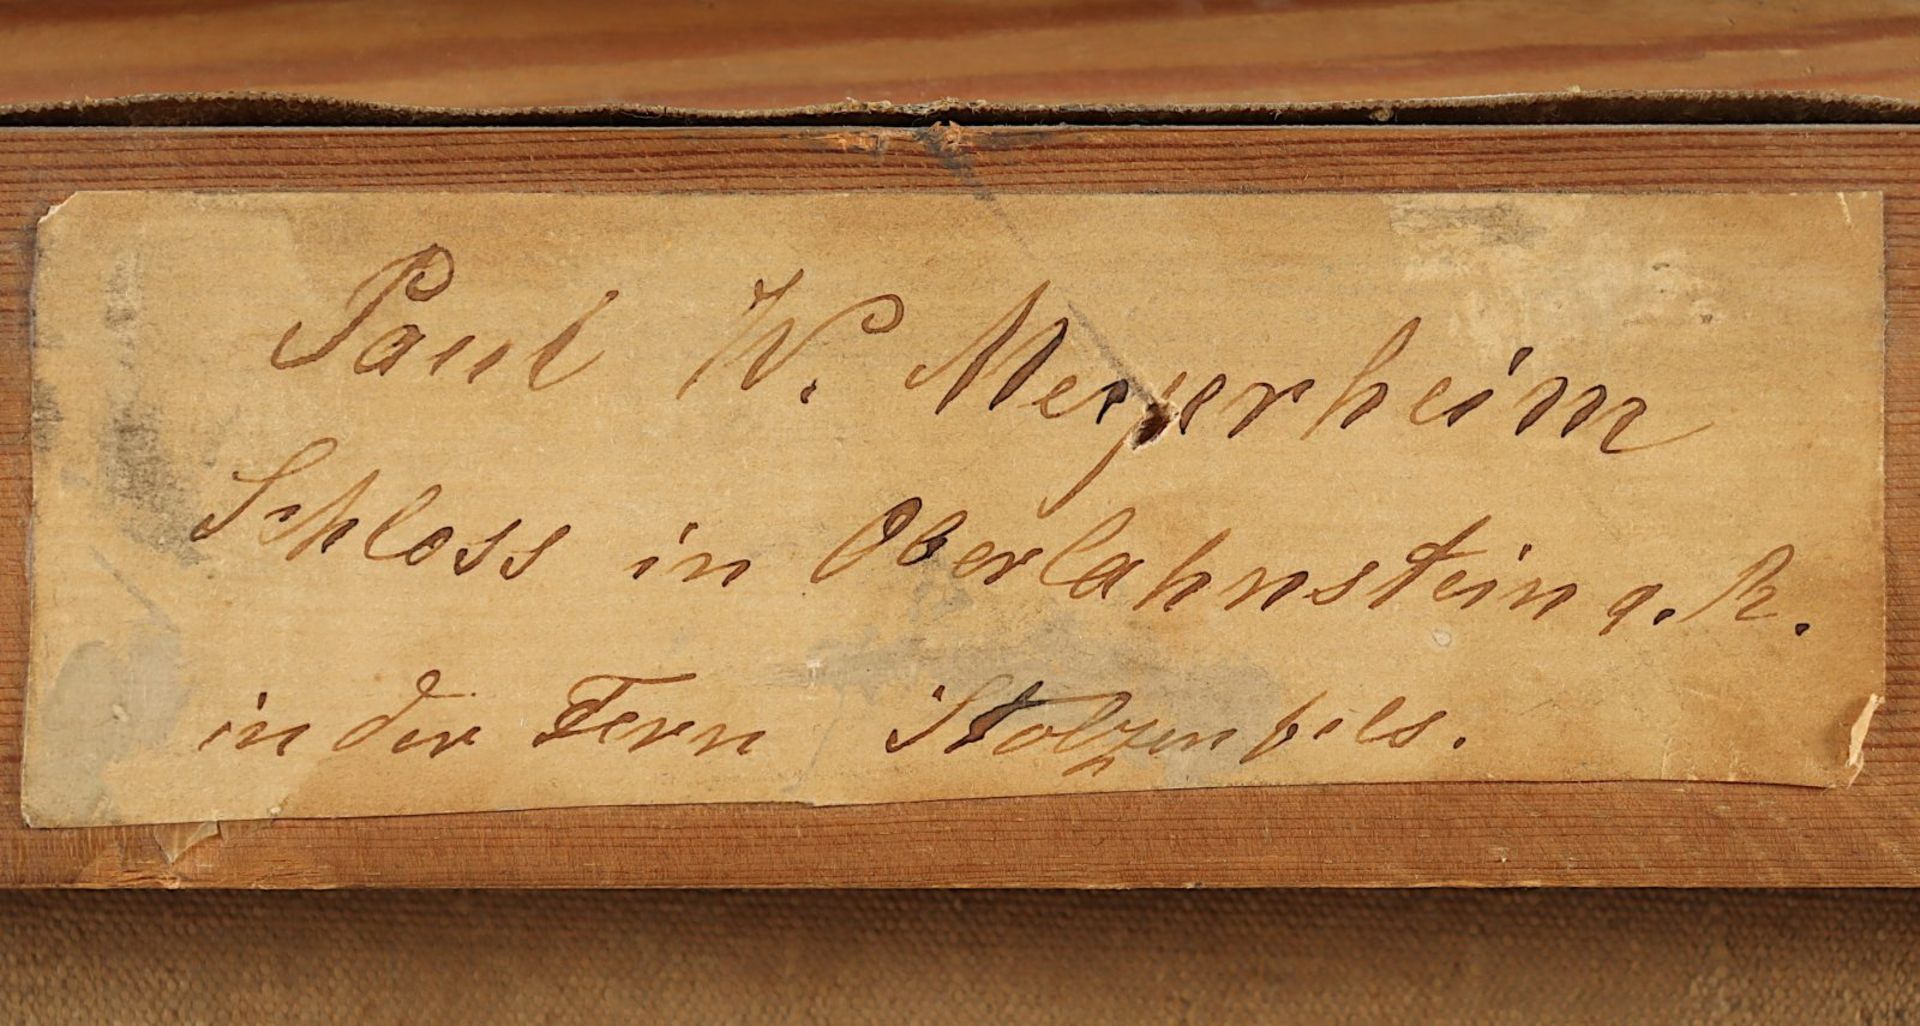 Paul W. Meyerheim
Schloss in Oberlahnstein a. R.
in der Fern Stolzenfels.